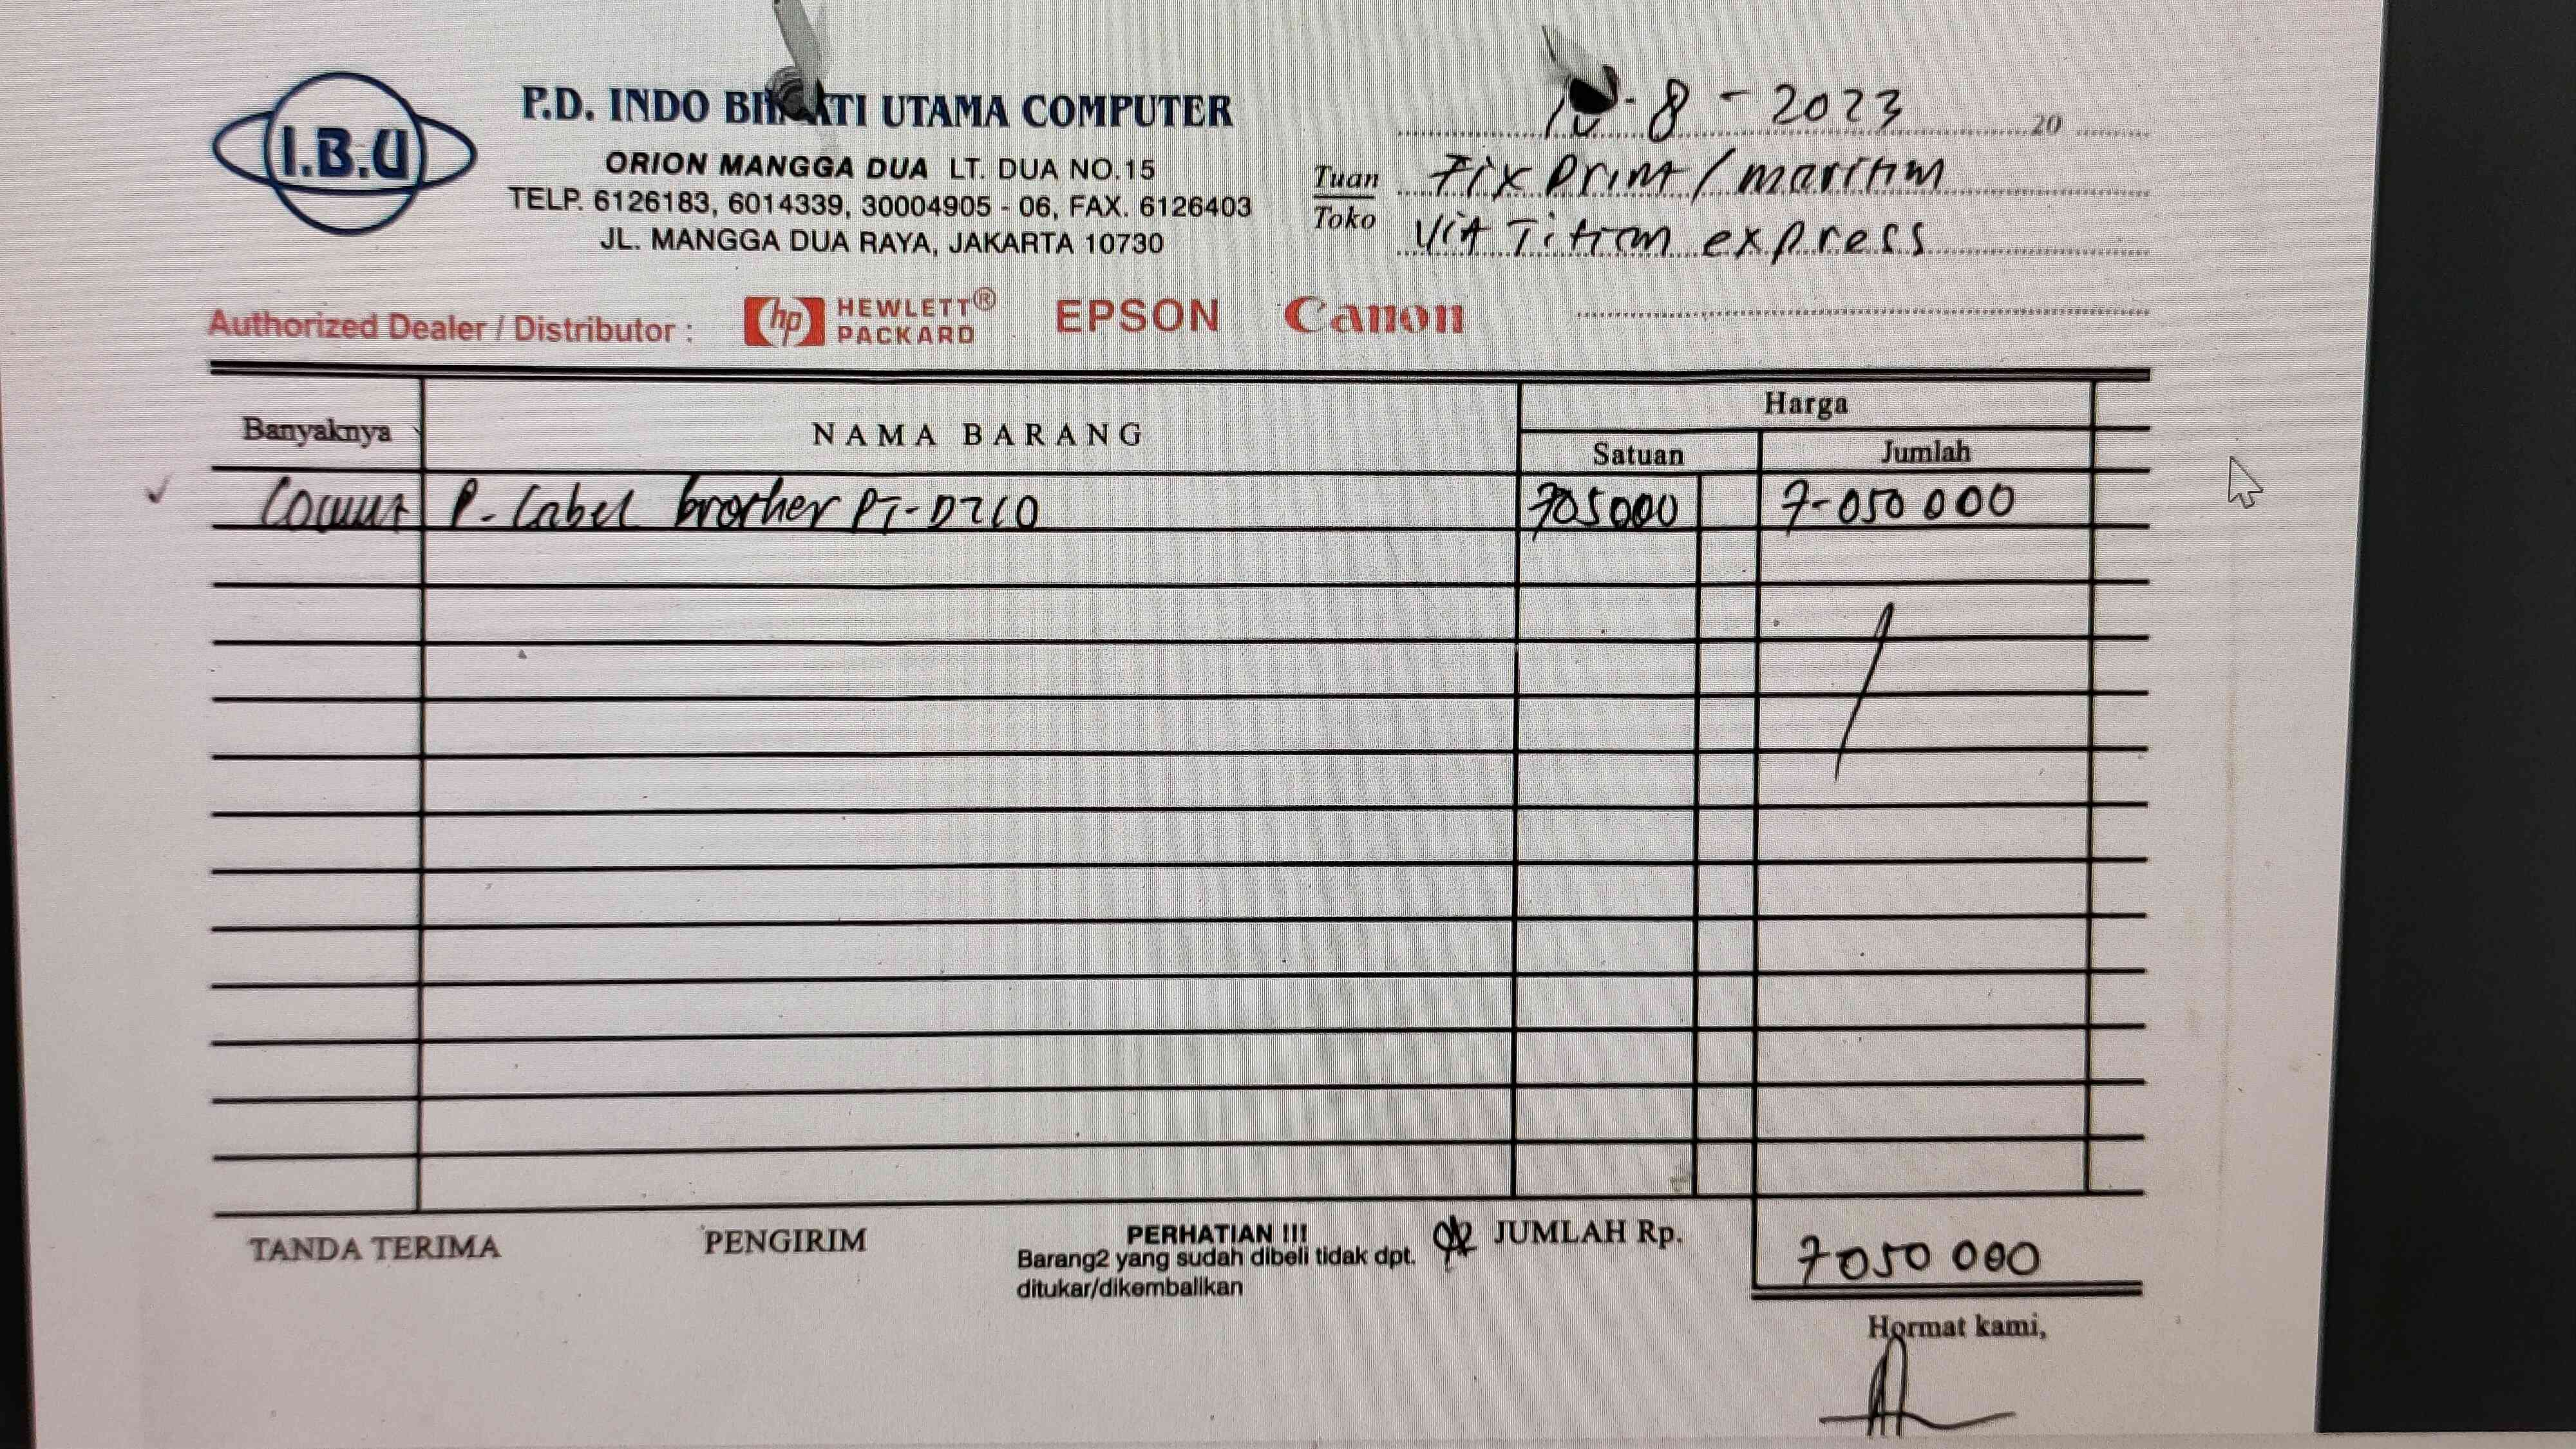 I.B.U
P.D. INDO BHAKTI UTAMA COMPUTER
ORION MANGGA DUA LT. DUA NO.15
TELP. 6126183, 6014339, 30004905 - 06, FAX. 6126403
JL. MANGGA DUA RAYA, JAKARTA 10730
- 8 - 2023 20
Tuan
Toko
Fix Print / maritim
Via Titian express
Authorized Dealer / Distributor : hp HEWLETT® PACKARD EPSON Canon
Banyaknya NAMA BARANG Harga
Satuan Jumlah
P. Label brother PT-D210 705000 7-050 000
TANDA TERIMA PENGIRIM PERHATIAN !!! JUMLAH Rp. 7050 000
Barang2 yang sudah dibeli tidak dpt.
ditukar/dikembalikan
Hormat kami,